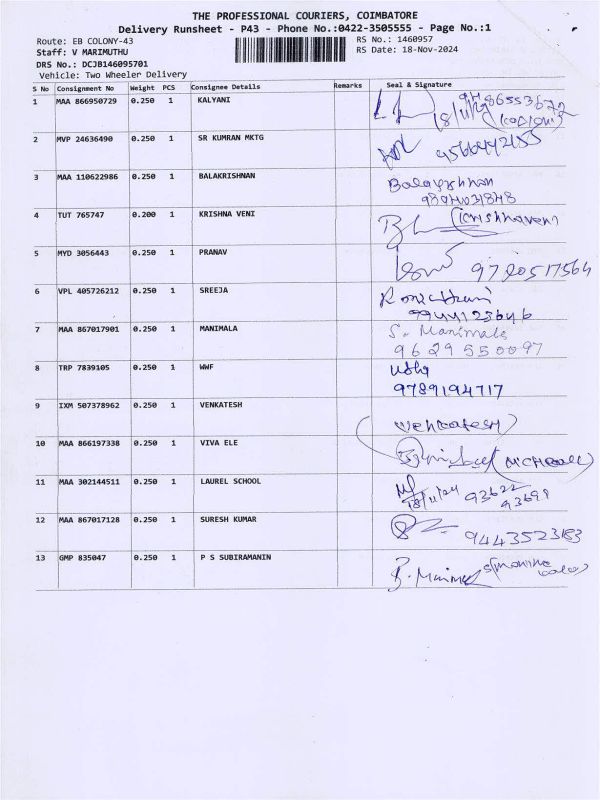 THE PROFESSIONAL COURIERS, COIMBATORE
Delivery Runsheet - P43 - Phone No.:0422-3505555 - Page No.:1
Route: EB COLONY-43
RS No.: 1460957
Staff: V MARIMUTHU
RS Date: 18-Nov-2024
DRS No.: DCJB146095701
Vehicle: Two Wheeler Delivery
S No Consignment No Weight PCS Consignee Details Remarks Seal & Signature
1 MAA 866950729 0.250 1 KALYANI
18/11/24
2 MVP 24636490 0.250 1 SR KUMRAN MKTG
3 MAA 110622986 0.250 1 BALAKRISHNAN Balakrishnan
9894031848
4 TUT 765747 0.200 1 KRISHNA VENI (Krishnaveni)
5 MYD 3056443 0.250 1 PRANAV
9720517564
6 VPL 405726212 0.250 1 SREEJA
9944123646
7 MAA 867017901 0.250 1 MANIMALA S. Manimala
9629550097
8 TRP 7839105 0.250 1 WWF Usha
9789194717
9 IXM 507378962 0.250 1 VENKATESH
(Venkatesh)
10 MAA 866197338 0.250 1 VIVA ELE
11 MAA 302144511 0.250 1 LAUREL SCHOOL
18/11/24 93622
93691
12 MAA 867017128 0.250 1 SURESH KUMAR
9443523183
13 GMP 835047 0.250 1 P S SUBIRAMANIN